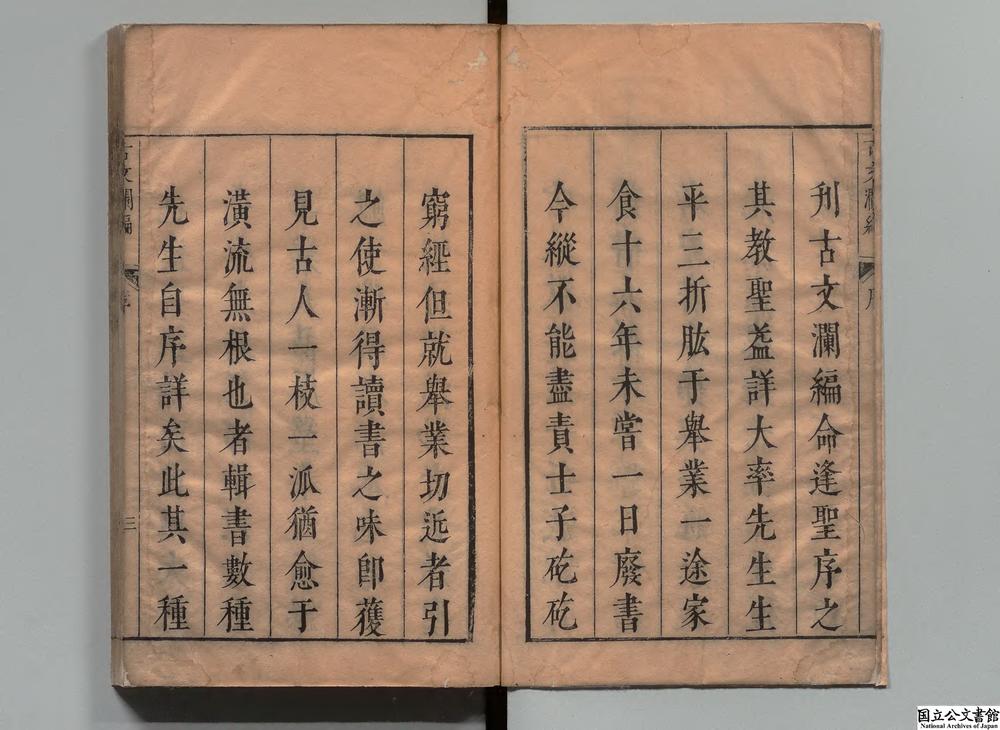 刋古文瀾編命逢聖序之
其教聖葢詳大率先生生
平三折肱于舉業一途家
食十六年未嘗一日廢書
今縱不能盡責士子矻矻
窮經但就舉業切近者引
之使漸得讀書之味卽獲
見古人一枝一泒猶愈于
潢流無根也者輯書數種
先生自序詳矣此其一種
古文瀾編
序
三
国立公文書館
National Archives of Japan